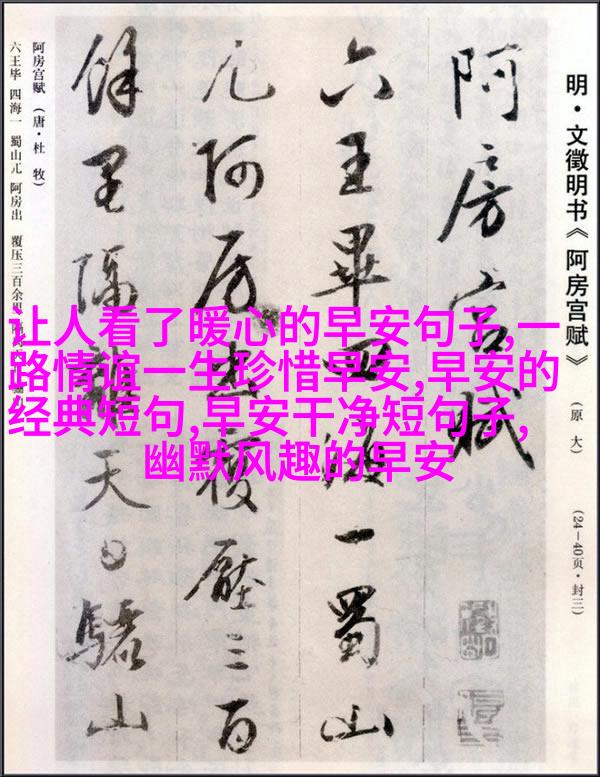 明·文徵明书《阿房宫赋》
(原大)
(24—40页·封三)
阿房宫赋
六王畢四海一蜀山
兀阿房出覆壓三百
餘里隔離天日驪山
阿房宫赋（唐·杜牧）
六王毕 四海一 蜀山兀 阿房出 覆压三百余里
让人看了暖心的早安句子,一
路情谊一生珍惜早安,早安的
经典短句,早安干净短句子,
幽默风趣的早安